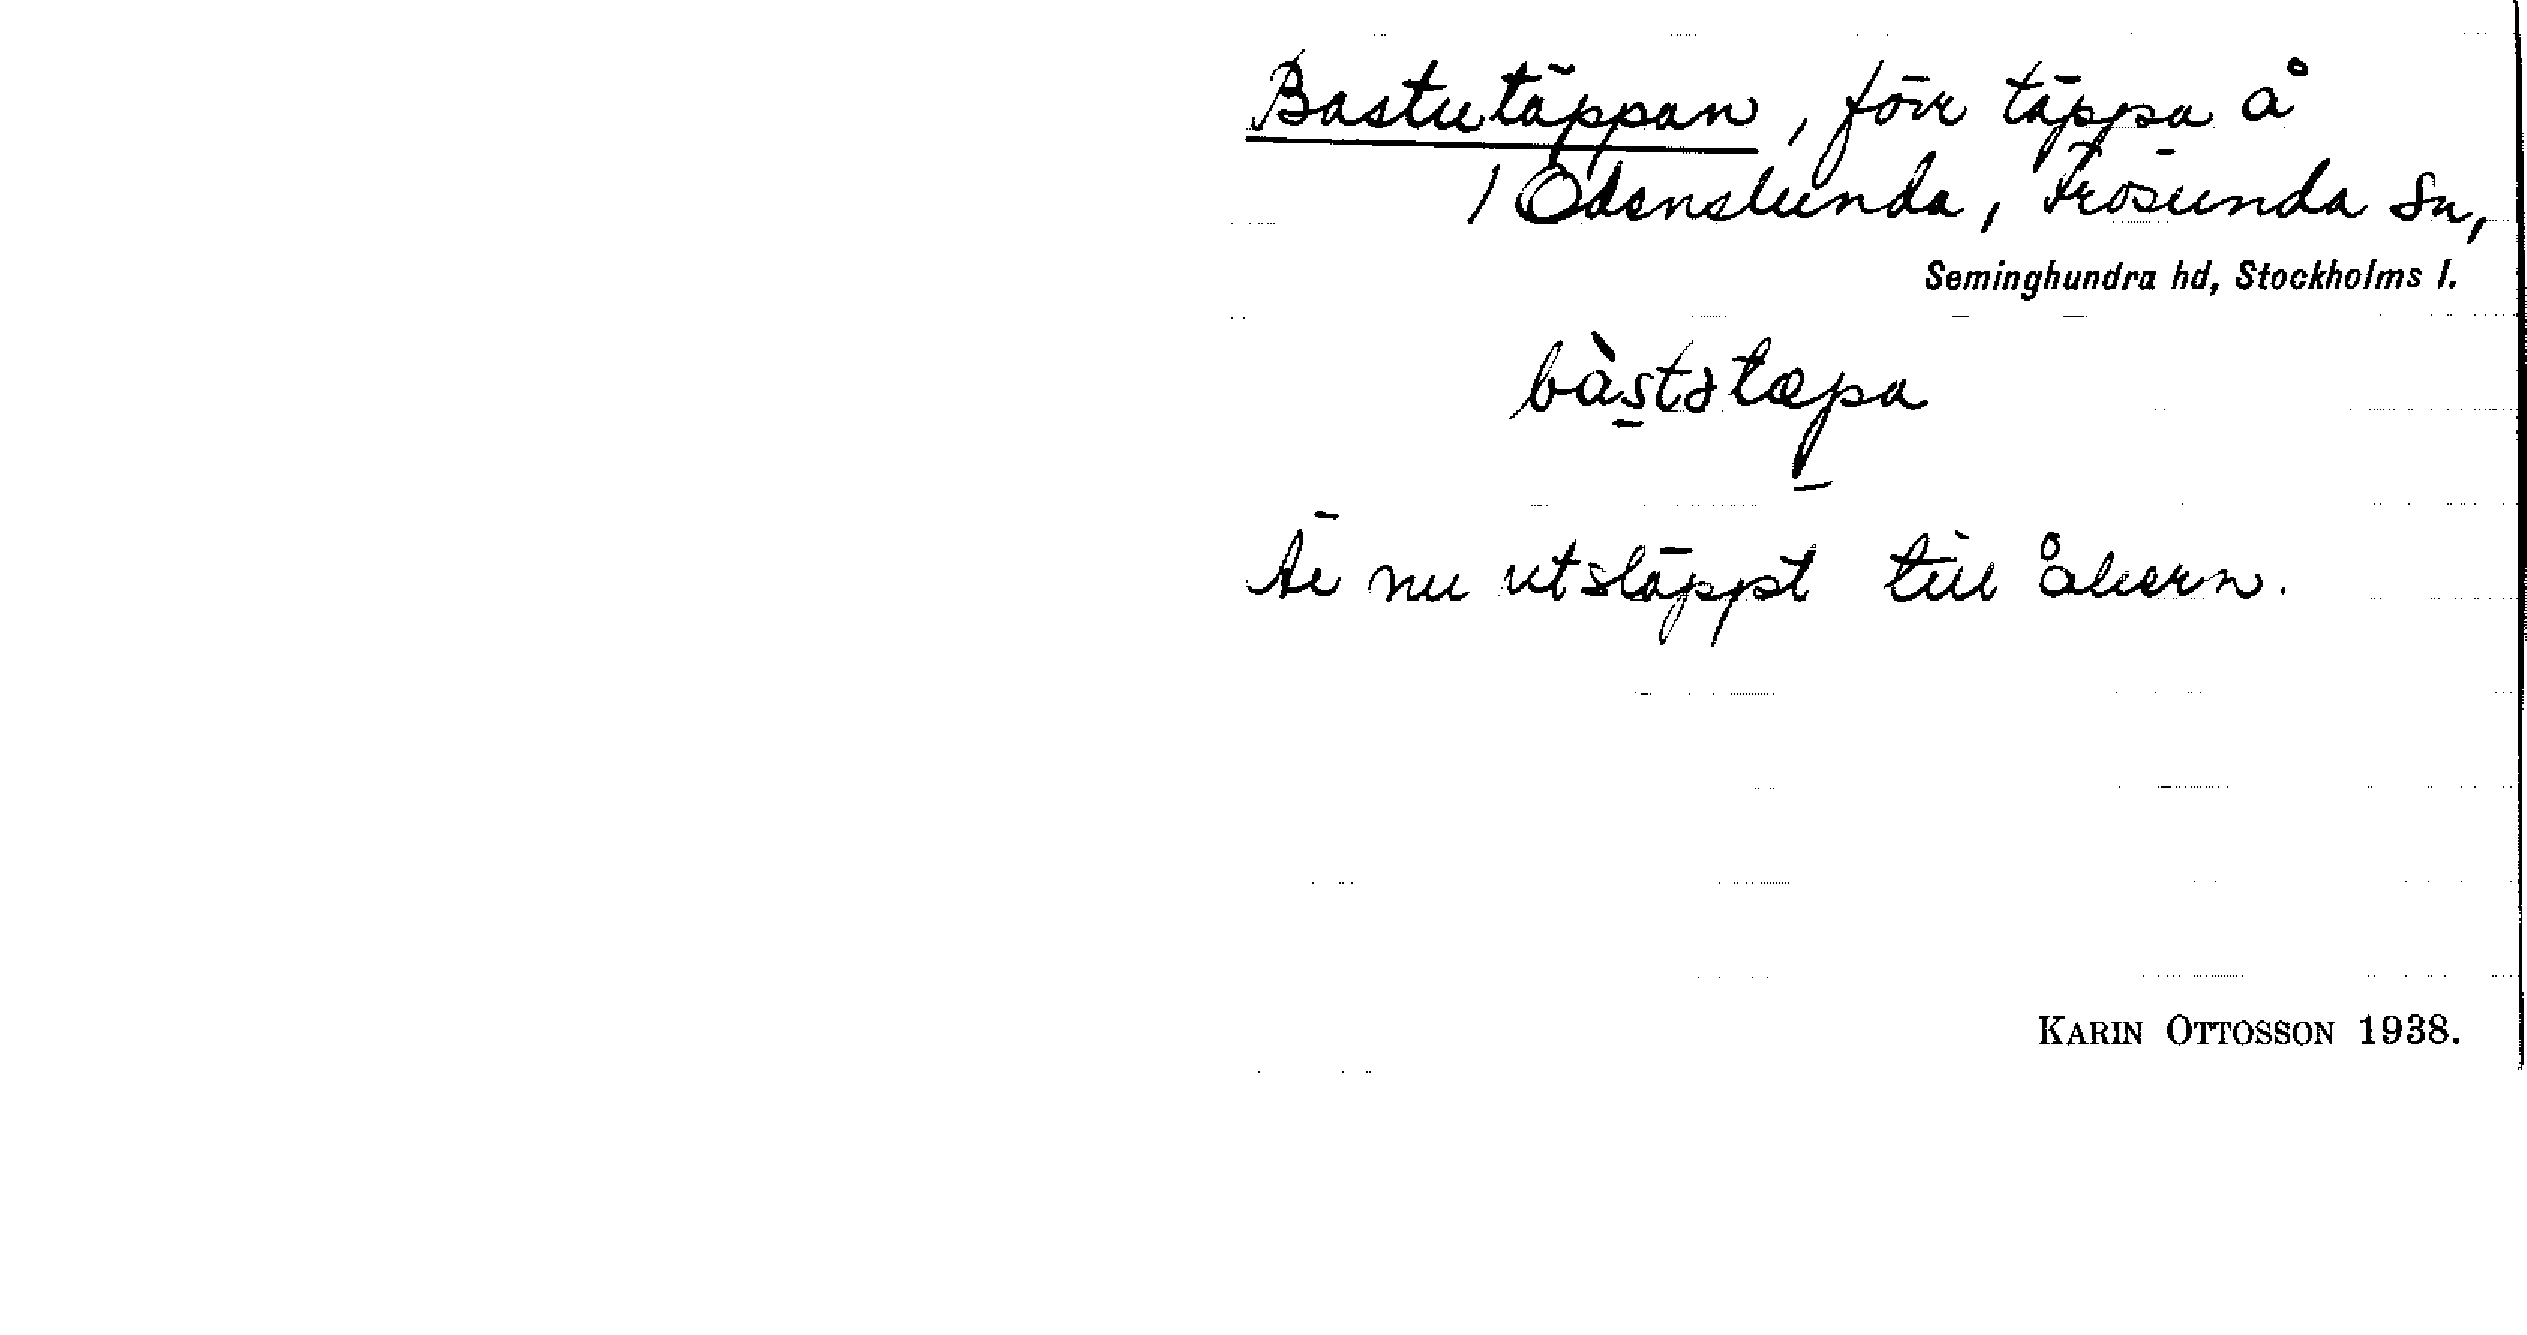 Bastutäppan, förr täppa å
/ Odenslunda, Frösunda sn,
Seminghundra hd, Stockholms l.
bàstətæpa
Är nu utsläppt till åkern.
KARIN OTTOSSON 1938.